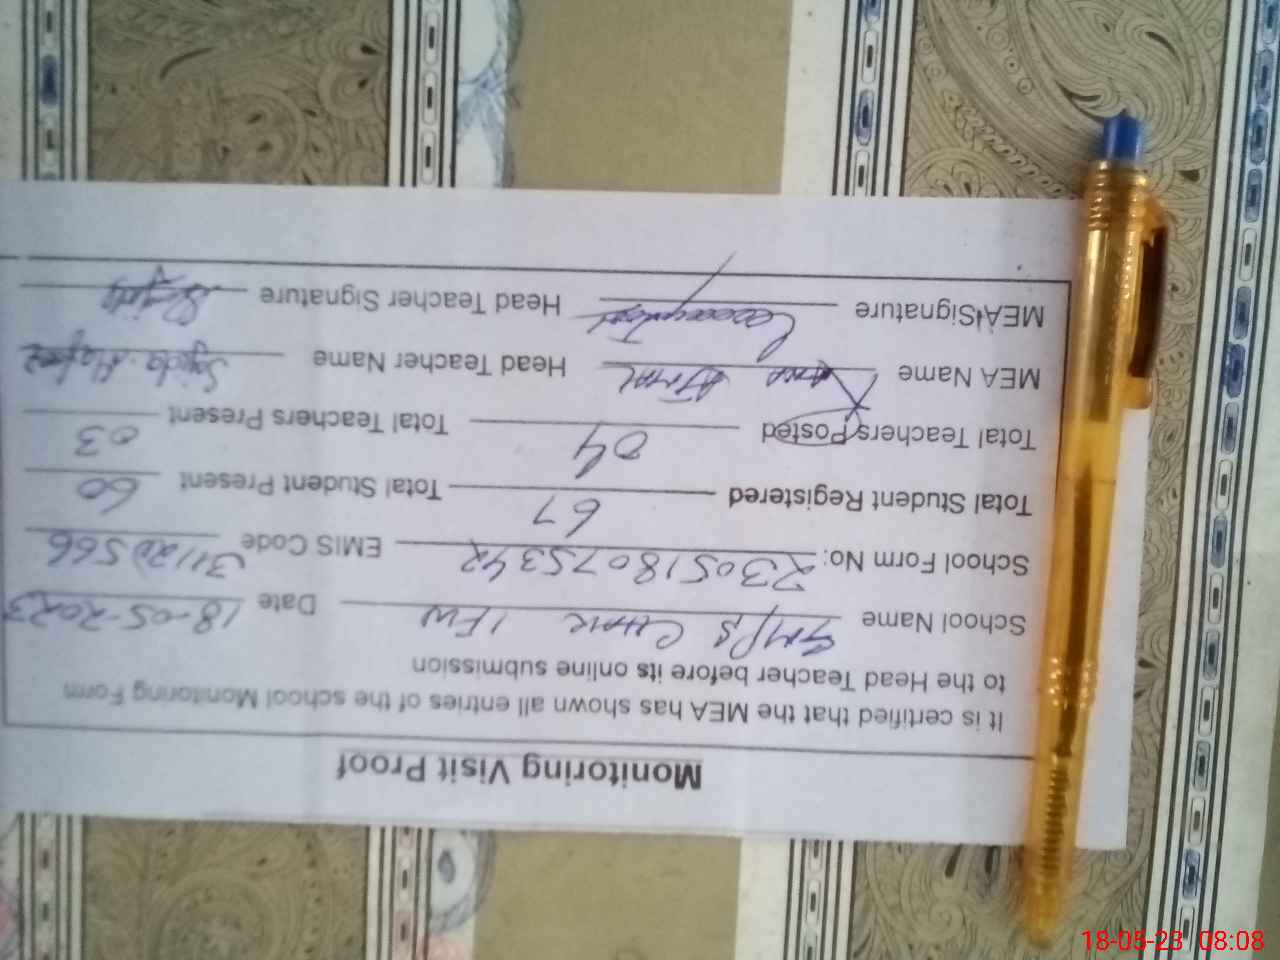 Monitoring Visit Proof
It is certified that the MEA has shown all entries of the school Monitoring Form
to the Head Teacher before its online submission
School Name GMPS CHAK 1 FW Date 18-05-2023
School Form No: 230518075342 EMIS Code 31120566
Total Student Registered 67 Total Student Present 60
Total Teachers Posted 04 Total Teachers Present 03
MEA Name Head Teacher Name
MEA Signature Head Teacher Signature
18-05-23 08:08